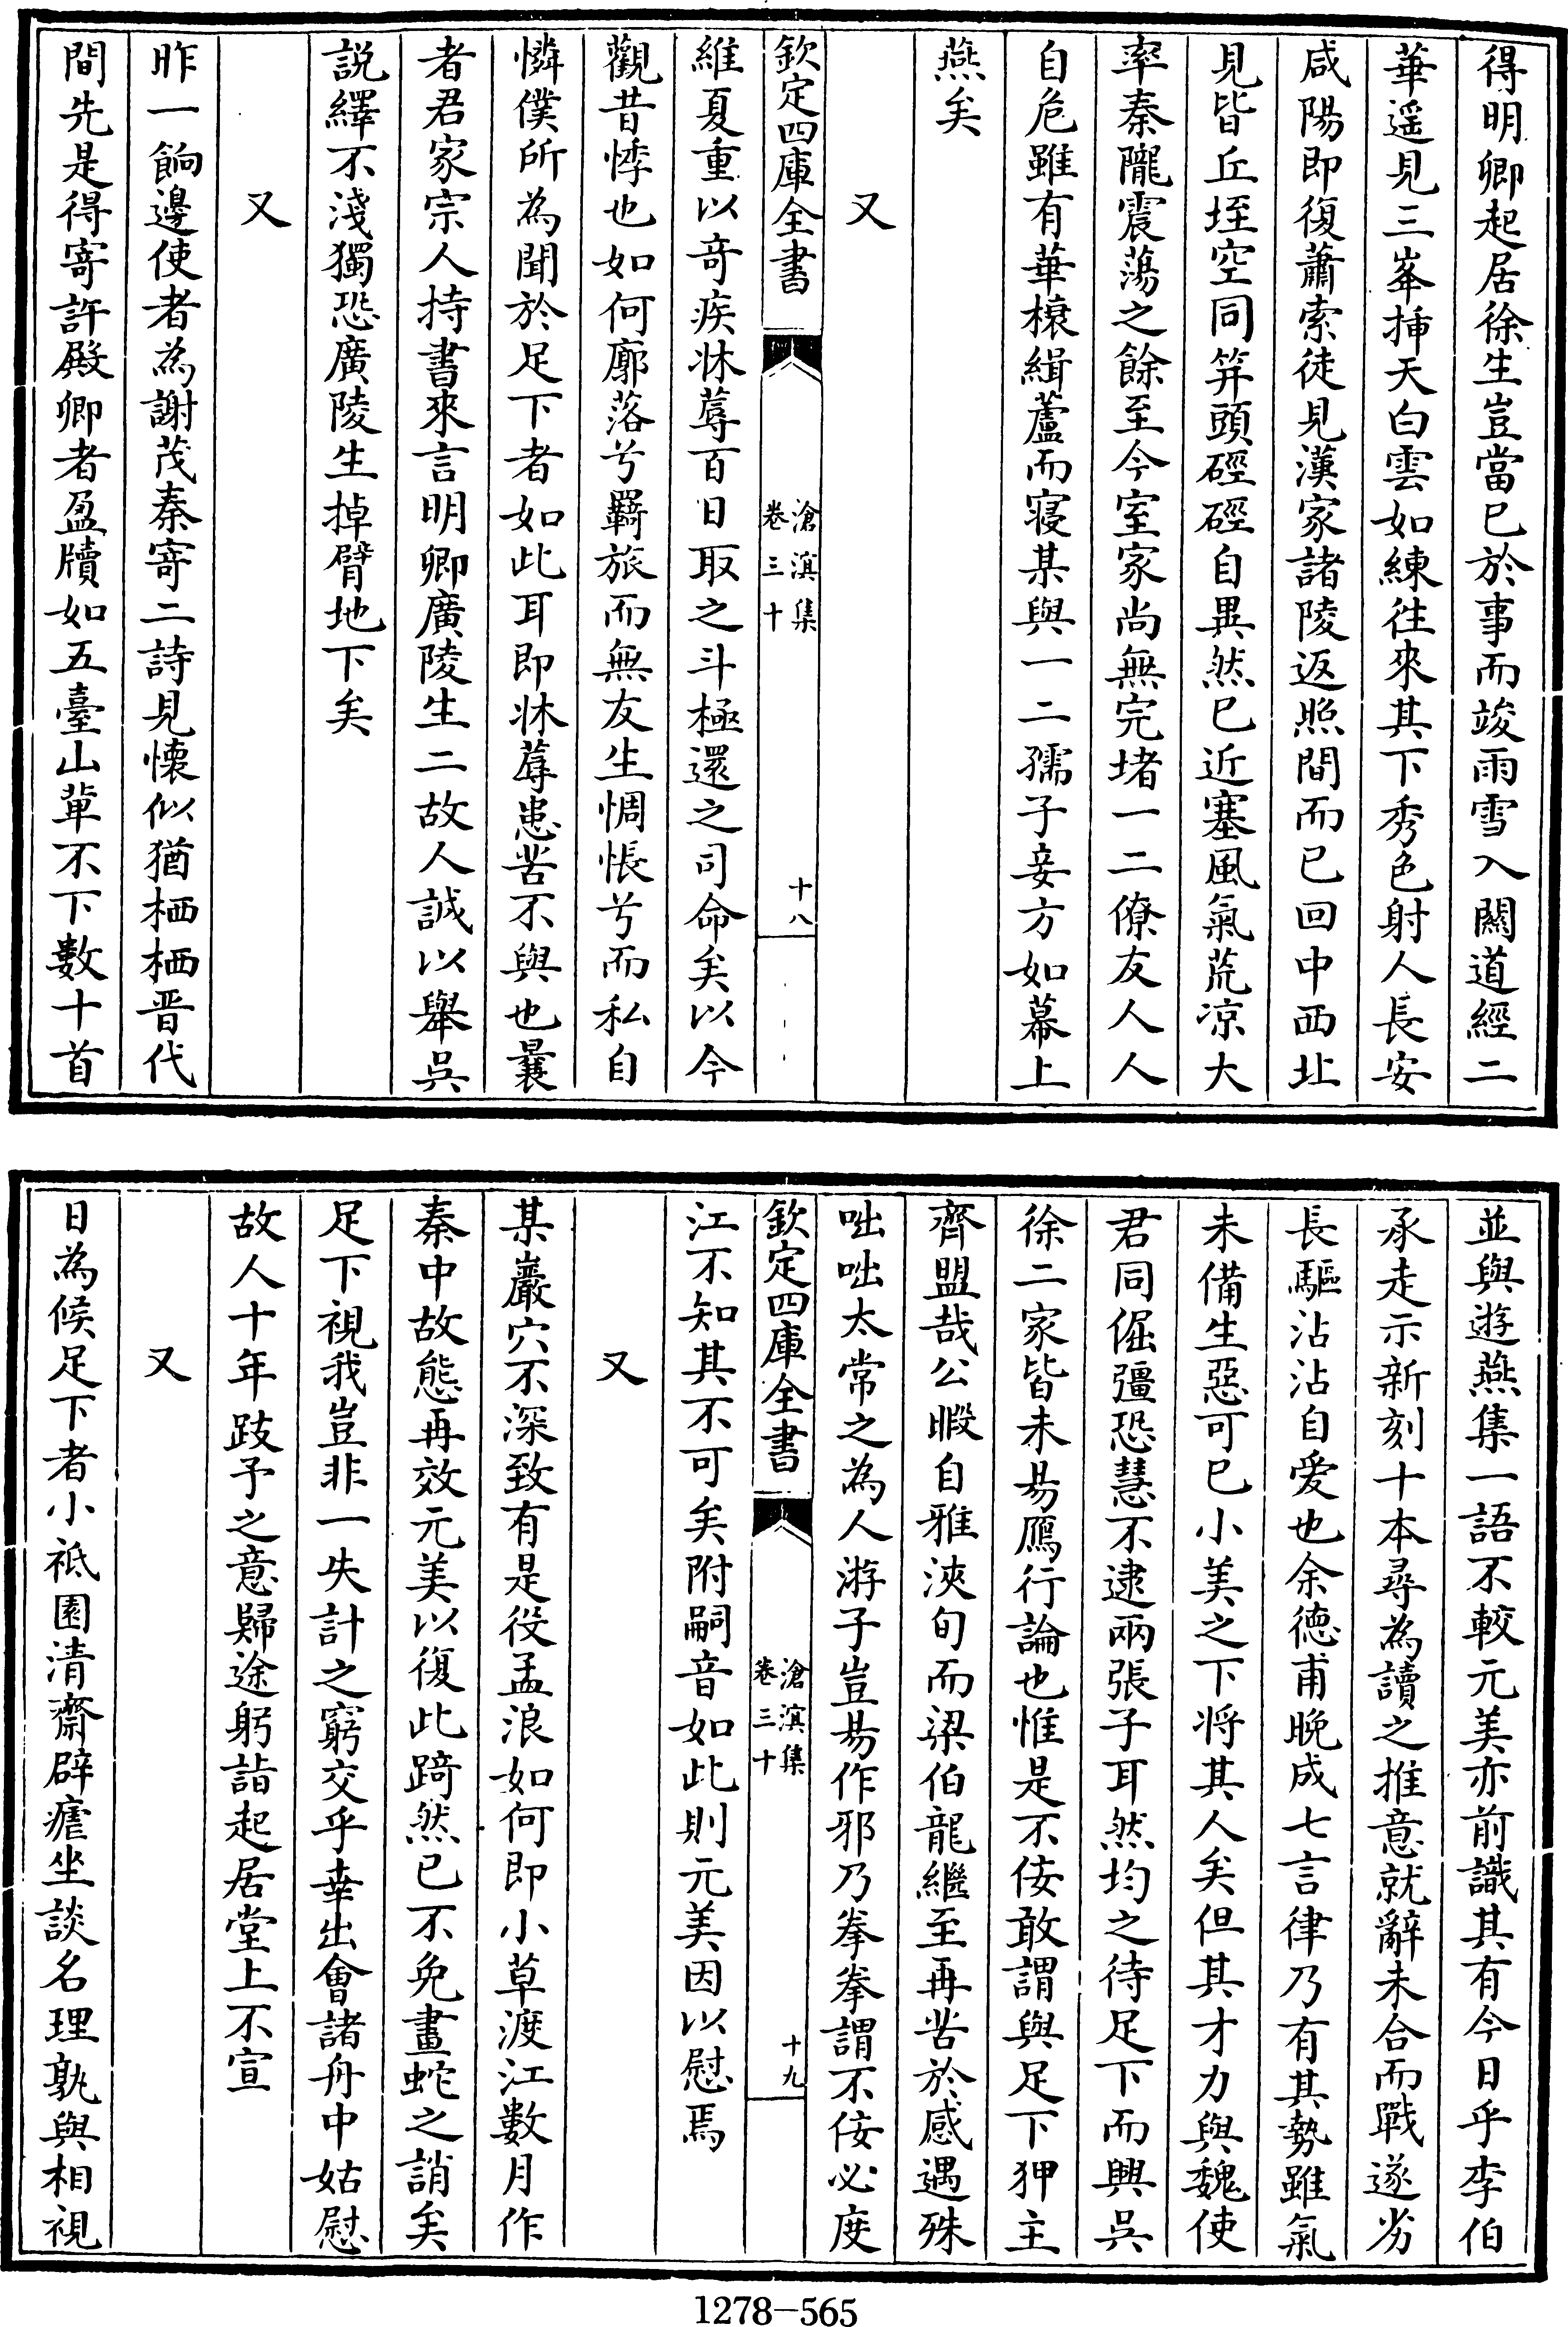 得明卿起居徐生豈當已於事而竣雨雪入關道經二
華遥見三峯揷天白雲如練徃來其下秀色射人長安
咸陽即復蕭索徒見漢家諸陵返照間而已回中西北
見皆丘垤空同笄頭硜硜自異然已近塞風氣荒凉大
率秦隴震蕩之餘至今室家尚無完堵一二僚友人人
自危雖有華榱緝蘆而寢某與一二孺子妾方如幕上
燕矣
又
欽定四庫全書
滄溟集
卷三十
十八
維夏重以竒疾牀蓐百日取之斗極還之司命矣以今
觀昔悸也如何廓落兮羇旅而無友生惆悵兮而私自
憐僕所為聞於足下者如此耳即牀蓐患苦不與也曩
者君家宗人持書來言明卿廣陵生二故人誠以舉吳
説繹不淺獨恐廣陵生掉臂地下矣
又
昨一餉邊使者為謝茂秦寄二詩見懐似猶栖栖晋代
間先是得寄許殿卿者盈牘如五臺山軰不下數十首
並與遊燕集一語不較元美亦前識其有今日乎李伯
承走示新刻十本尋為讀之推意就辭未合而戰遂劣
長驅沾沾自愛也余徳甫晚成七言律乃有其勢雖氣
未備生惡可已小美之下将其人矣但其才力與魏使
君同倔彊恐慧不逮兩張子耳然均之待足下而興吳
徐二家皆未易鴈行論也惟是不佞敢謂與足下狎主
齊盟哉公暇自雅浹旬而梁伯龍繼至再苦於感遇殊
咄咄太常之為人游子豈易作邪乃拳拳謂不佞必度
欽定四庫全書
滄溟集
卷三十
十九
江不知其不可矣附嗣音如此則元美因以慰焉
又
某巖穴不深致有是役孟浪如何即小草渡江數月作
秦中故態再效元美以復此踦然已不免畫蛇之誚矣
足下視我豈非一失計之窮交乎幸出會諸舟中姑慰
故人十年跂予之意歸途躬詣起居堂上不宣
又
日為候足下者小祗園清齋辟瘧坐談名理孰與相視
1278-565